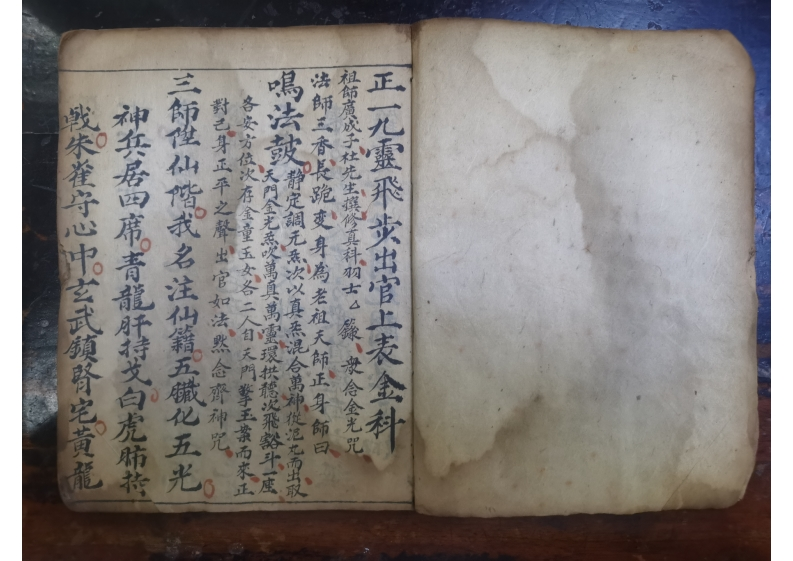 正一九靈飛步出官上表金科
祖師廣成子杜先生撰修真科羽士厶 籙 衆念金光咒
法師三香長跪变身為老祖天師正身師曰
鳴法鼓
静定調元炁次以真炁混合萬神從泥丸而出取
天門金光炁吹萬真萬靈環拱聽次飛豁斗一座
各安方位次存金童玉女各二人自天門擎玉案而來正
對己身正平之聲出官如法默念齊神咒
三師陞仙階我名注仙籍五臟化五光
神兵居四席青龍肝持戈白虎肺持
戟朱雀守心中玄武鎮腎宅黃龍